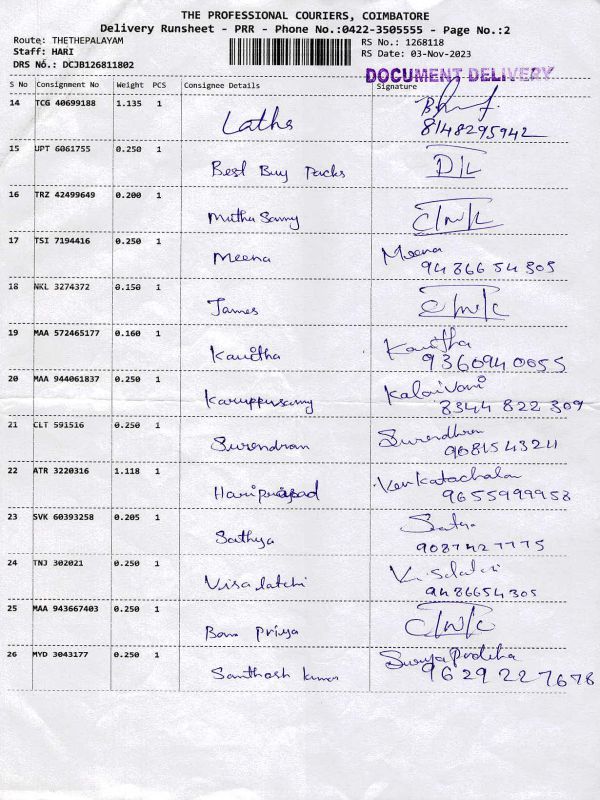 THE PROFESSIONAL COURIERS, COIMBATORE
Delivery Runsheet - PRR - Phone No.:0422-3505555 - Page No.:2
Route: THETHEPALAYAM
Staff: HARI
DRS No.: DCJB126811802
RS No.: 1268118
RS Date: 03-Nov-2023
DOCUMENT DELIVERY
S No Consignment No Weight PCS Consignee Details Signature
14 TCG 40699188 1.135 1
Latha
8148295942
15 UPT 6061755 0.250 1
Best Buy Packs D/L
16 TRZ 42499649 0.200 1
Muthu Samy C/W/L
17 TSI 7194416 0.250 1
Meena Meena
9486654305
18 NKL 3274372 0.150 1
James
19 MAA 572465177 0.160 1
Kavitha Kavitha
9360940055
20 MAA 944061837 0.250 1
Karuppusamy Kalaivani
8344 822 309
21 CLT 591516 0.250 1
Surendran Surendhran
9081543211
22 ATR 3220316 1.118 1
Hariprasad Venkatachalam
9655999958
23 SVK 60393258 0.205 1
Sathya Satya
9087427775
24 TNJ 302021 0.250 1
Visalatchi
9486654305
25 MAA 943667403 0.250 1
Priya
26 MYD 3043177 0.250 1
Santhosh kumar
9629227678